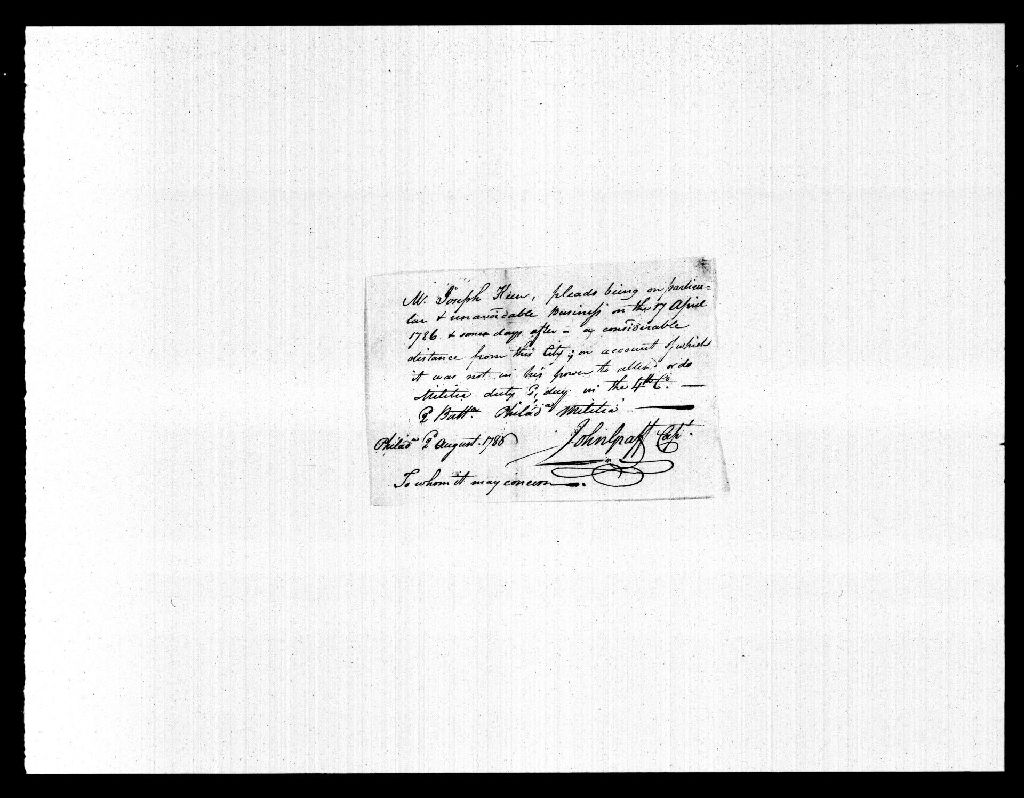 Mr. Joseph Keen, pleads being on particu-
lar & unavoidable Business on the 17 April
1786 & some days after - a considerable
distance from this City; on account of which
it was not in his power to attend or do
Militia duty day in the 4th Co. —
2 Battn. Philada. Militia —
Philada. 2 August 1786
John Graff Capt.
To whom it may concern —.